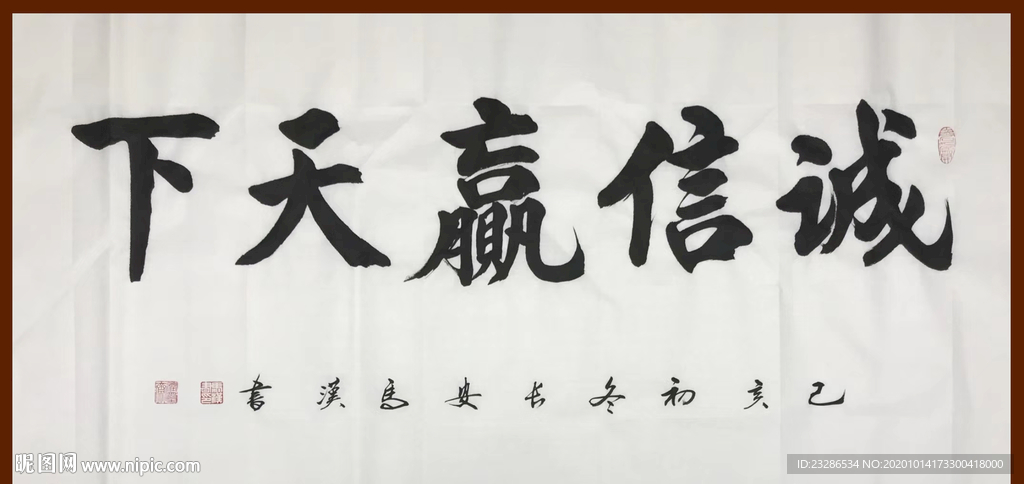 诚信赢天下
己亥初冬长安马汉书
昵图网 www.nipic.com
ID:23286534 NO:20201014173300418000